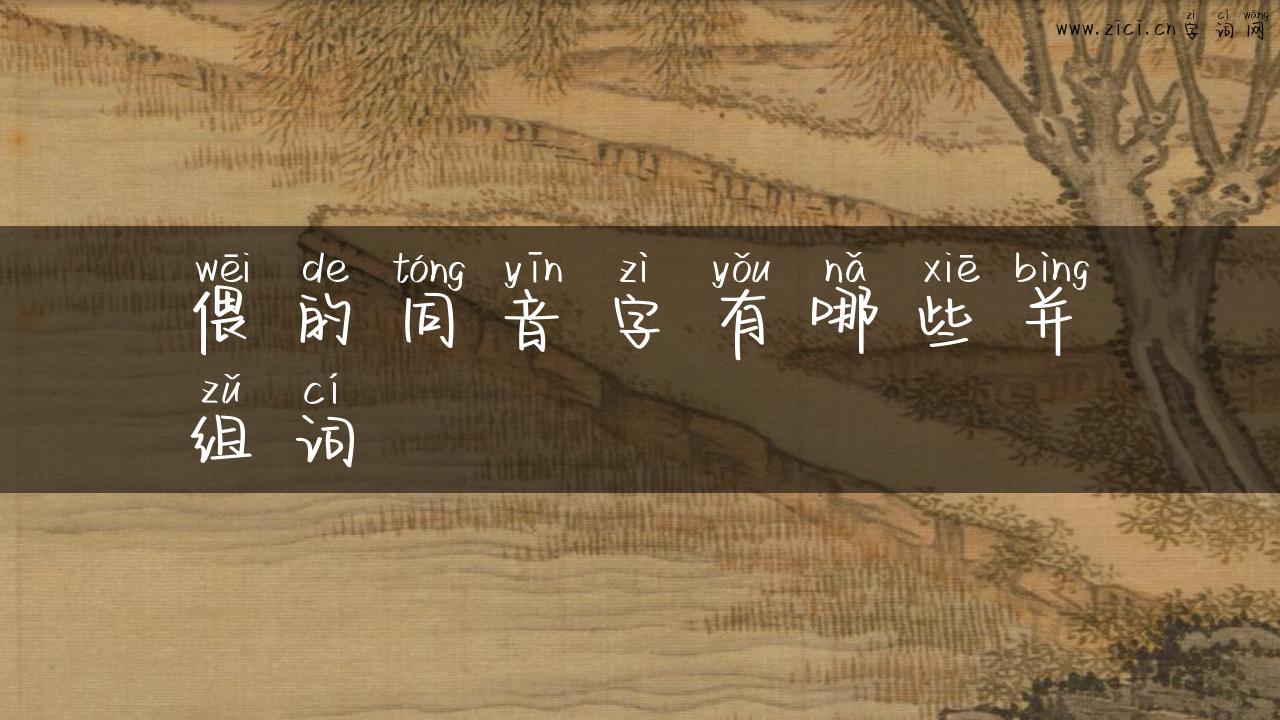 zì cí wǎng
www.zici.cn字词网
wēi de tóng yīn zì yǒu nǎ xiē bìng
偎的同音字有哪些并
zǔ cí
组词